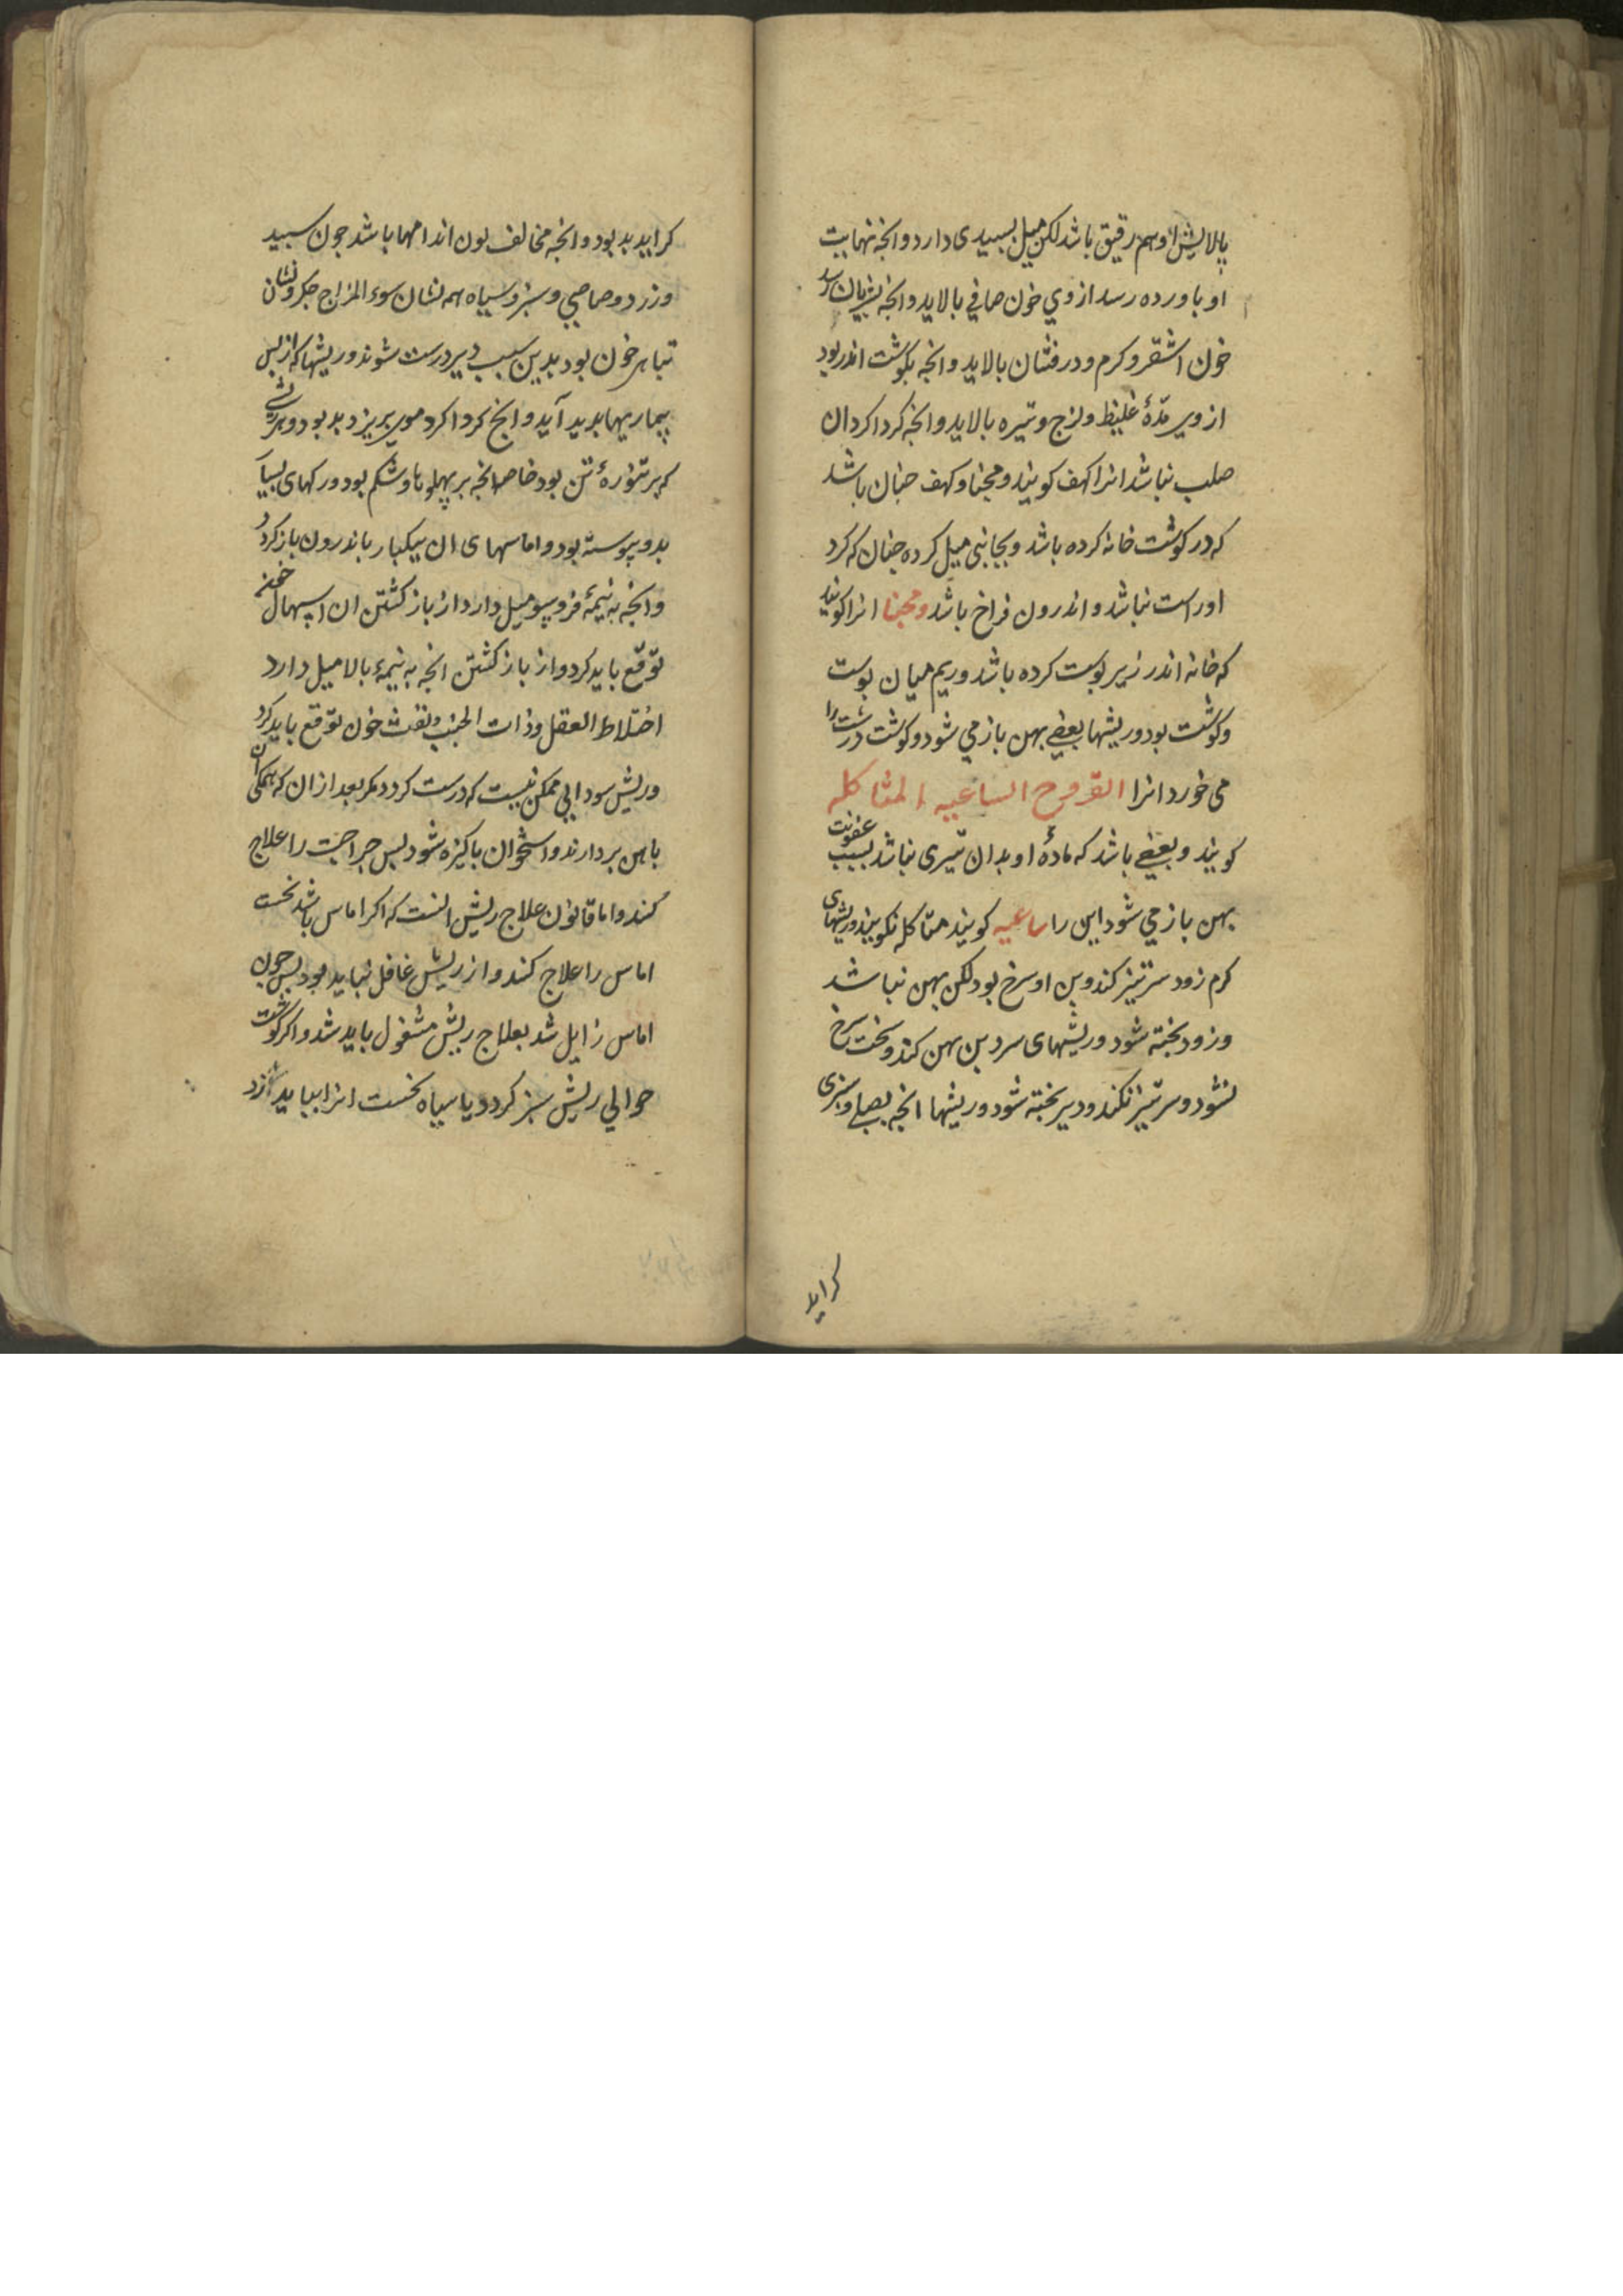 پالایش او هم رقیق باشد لکن میل بسپیدی دارد و انجه نهایت
او باورده رسد از وی خون صافی بالاید و انجه بشریان رسد
خون اشقر و کرم و درفشان بالاید و انجه بکوشت اندر بود
از وی مدّهٔ غلیظ و لزج و تیره بالاید و انجه کردا کرد ان
صلب نباشد انرا کهف کویند و مخبا و کهف جنان باشد
که در کوشت خانه کرده باشد و بجانبی میل کرده جنان که کرد
او راست نباشد و اندرون فراخ باشد و مخبا انرا کویند
که خانه اندر زیر بوست کرده باشد و ریم میان بوست
و کوشت بود و ریشها بعضی بهن باز می شود و کوشت درست را
می خورد انرا القروح الساعیه المتاکله
کویند و بعضی باشد که مادهٔ او بدان تیزی نباشد بسبب عفونت
بهن باز می شود این را ساعیه کویند متاکله نکویند و ریشهای
کرم زود سر تیز کند و بن او سرخ بود لکن بهن نباشد
و زود بخته شود و ریشهای سرد بن بهن کند و سخت سرخ
نشود و سر تیز نکند و دیر بخته شود و ریشها انجه بصلی و سبزی
کراید
کراید بد بود و انجه مخالف لون اندامها باشد جون سبید
و زرد و رصاصی و سبز و سیاه همه نشان سوء المزاج جکر و نشان
تباهی خون بود بدین سبب دیر درست شوند و ریشها که از بس
بیماریها بدید آید و انج کردا کرد موی بریزد بد بود و هر ریشی
که بر تنورهٔ تن بود خاصه انجه بر پهلوها و شکم بود و رکهای بسیار
بدو پیوسته بود و اماسهای ان بیکبار باندرون باز کردد
و انجه به نیمهٔ فروسو میل دارد از باز کشتن ان اسهال خون
توقّع باید کرد و از باز کشتن انجه به نیمهٔ بالا میل دارد
اختلاط العقل و ذات الجنب و نفث خون توقع باید کرد
و ریش سودایی ممکن نیست که درست کردد مکر بعد از ان که همکی ان
باهن بردارند و استخوان باکیزه شود بس جراحت را علاج
کنند و اما قانون علاج ریش انست که اکر اماس باشد نخست
اماس را علاج کنند و از ریش غافل نباید بود بس جون
اماس زایل شد بعلاج ریش مشغول باید شد و اکر کوشت
حوالی ریش سبز کردد یا سیاه نخست انرا بباید ازد